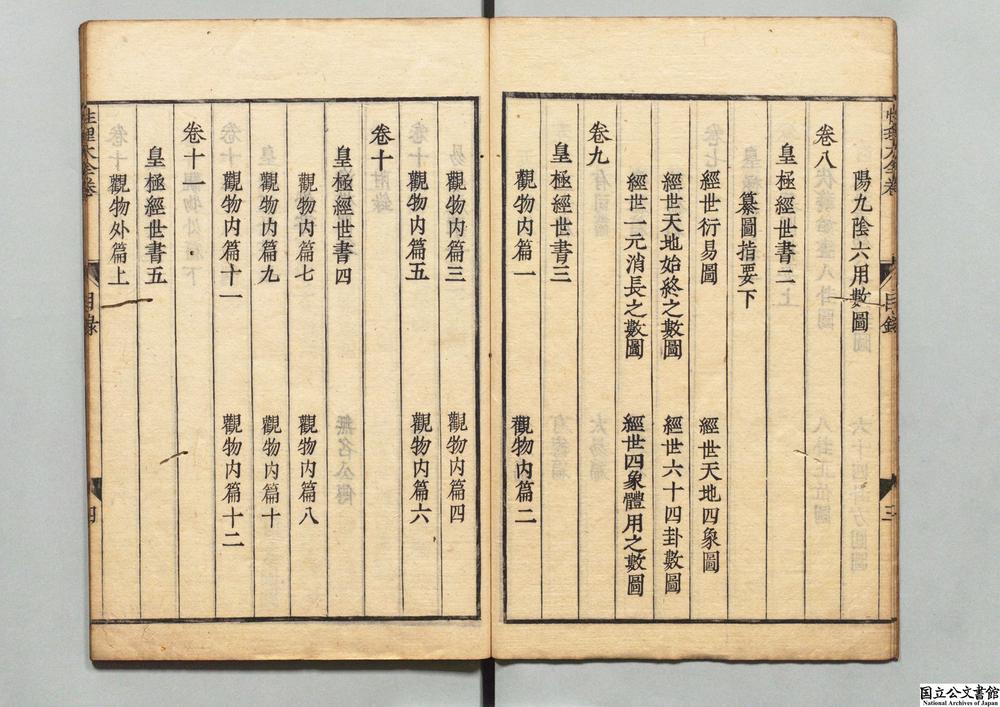 陽九陰六用數圖
卷八
皇極經世書二
纂圖指要下
經世衍易圖　經世天地四象圖
經世天地始終之數圖　經世六十四卦數圖
經世一元消長之數圖　經世四象體用之數圖
卷九
皇極經世書三
觀物内篇一　觀物内篇二
觀物内篇三　觀物内篇四
觀物内篇五　觀物内篇六
卷十
皇極經世書四
觀物内篇七　觀物内篇八
觀物内篇九　觀物内篇十
觀物内篇十一　觀物内篇十二
卷十一
皇極經世書五
觀物外篇上
性理大全卷　目錄　四
国立公文書館
National Archives of Japan